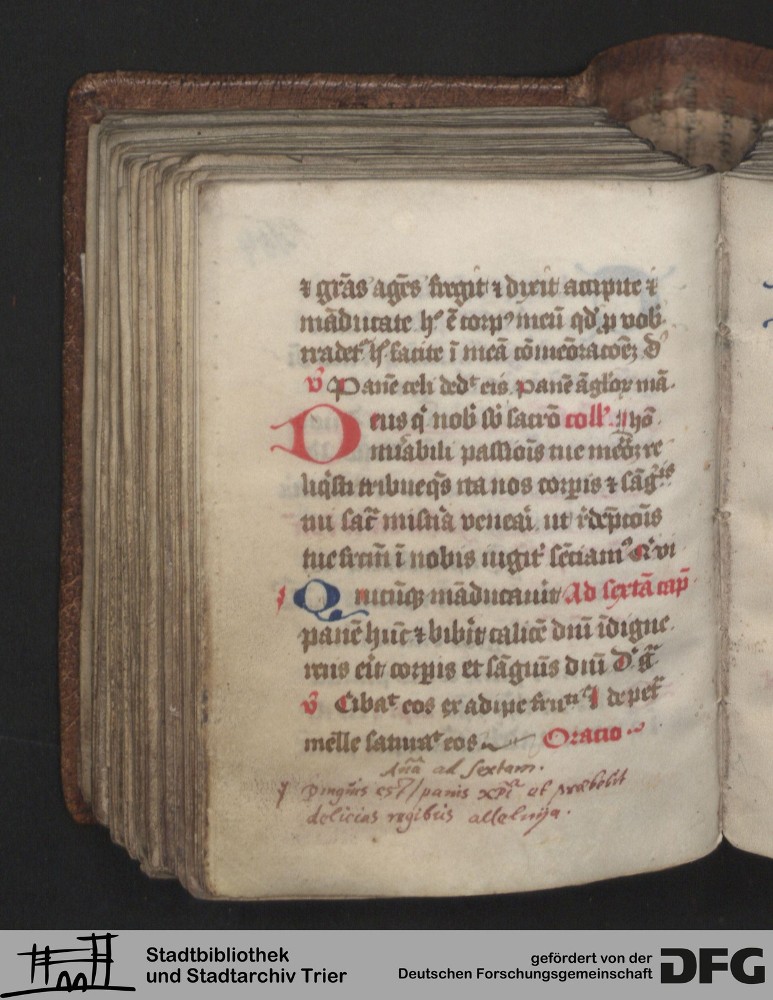 ⁊ gr̄as agēs fregit ⁊ dixit accipite ⁊
māducate hꝰ ē corpꝰ meū qd̄ p vob̄
tradetᷣ hͦ facite ī meā cōmēoracōeꝫ
v̄ Panē celi dedᷣ eis Panē āgloꝝ mā
Deus q̄ nob̄ sb̄ sacrō coll̄
mirabili passiois tue
liqͥsti tribue q̄s ita nos corpis ⁊ sāgͥⁱˢ
tui sac̄ misria venerai ut rᷣdēpcōis
tue frctm̄ ī nobis iugitᷣ sēciamꝰ
Quicūqꝫ māducauit Ad sextā cap̄
panē hūc ⁊ bibit calicē dnī īdigne
reus eit corpis et sāgnis dnī D̄ g̃
v̄ Cibaᵗ eos ex adipe frum̄ de pet
melle saturaᵗ eos Oracio
Añā ad Sextam.
Pinguis est panis xp̄i et præbebit
delicias regibus alleluija.
Stadtbibliothek
und Stadtarchiv Trier
gefördert von der
Deutschen Forschungsgemeinschaft
DFG